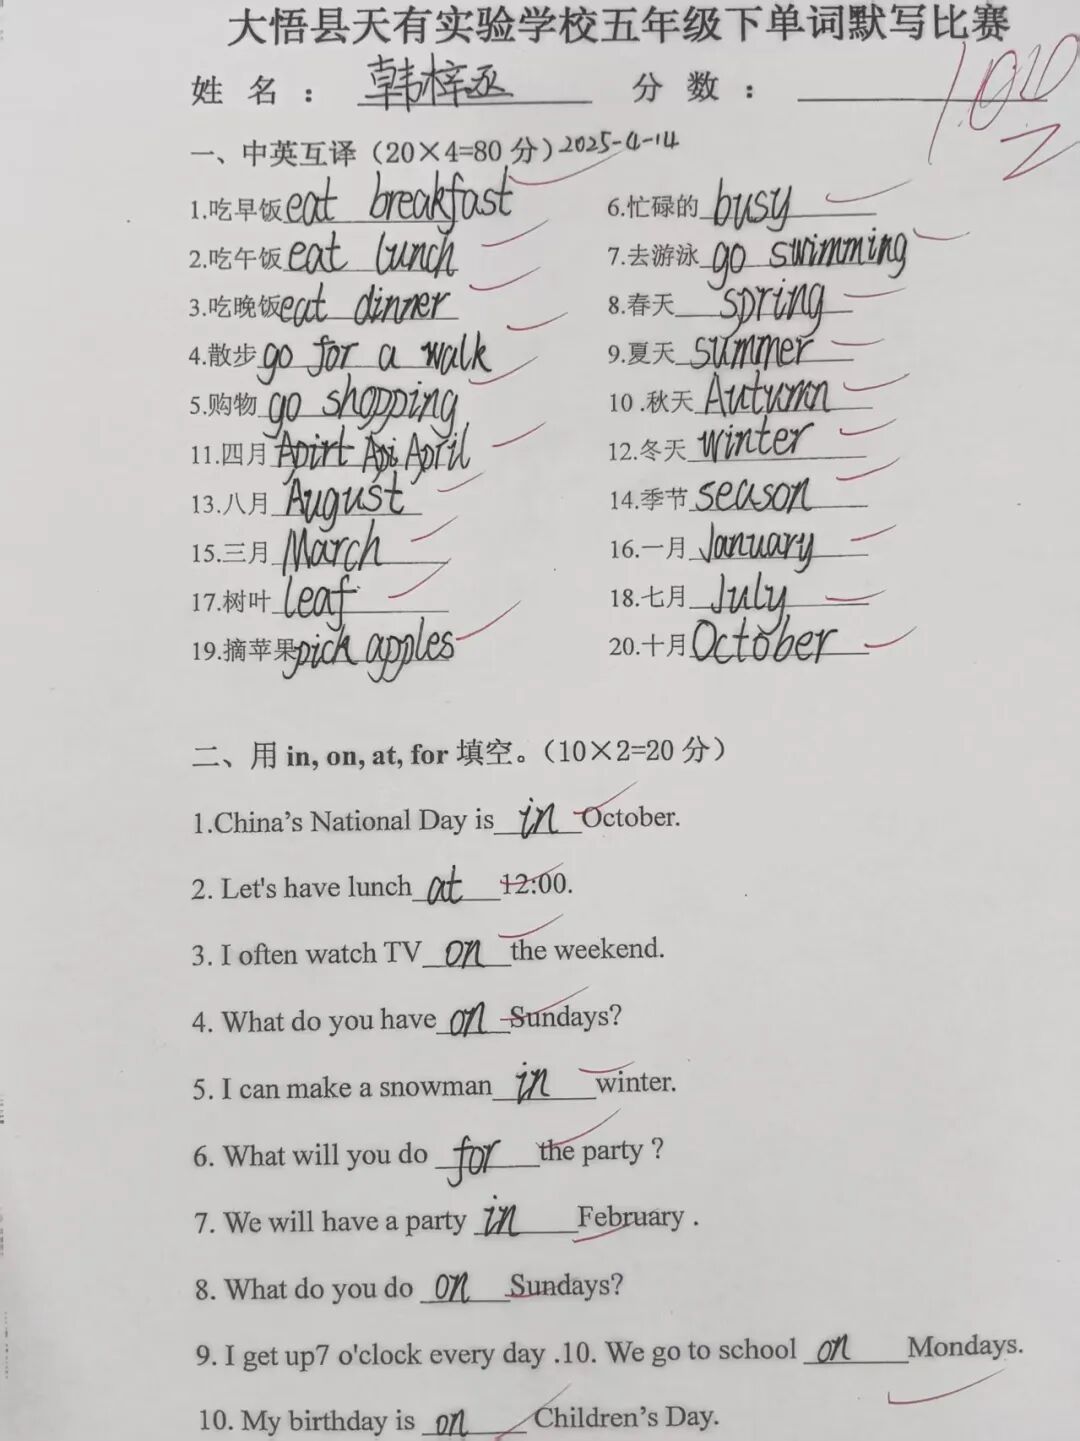 大悟县天有实验学校五年级下单词默写比赛
姓 名 : 韩梓丞 分 数 : 100
一、中英互译（20×4=80 分）2025-4-14
1.吃早饭 eat breakfast 6.忙碌的 busy
2.吃午饭 eat lunch 7.去游泳 go swimming
3.吃晚饭 eat dinner 8.春天 spring
4.散步 go for a walk 9.夏天 summer
5.购物 go shopping 10 .秋天 Autumn
11.四月 April 12.冬天 winter
13.八月 August 14.季节 season
15.三月 March 16.一月 January
17.树叶 leaf 18.七月 July
19.摘苹果 pick apples 20.十月 October
二、用 in, on, at, for 填空。（10×2=20 分）
1.China's National Day is in October.
2. Let's have lunch at 12:00.
3. I often watch TV on the weekend.
4. What do you have on Sundays?
5. I can make a snowman in winter.
6. What will you do for the party ?
7. We will have a party in February .
8. What do you do on Sundays?
9. I get up7 o'clock every day .10. We go to school on Mondays.
10. My birthday is on Children's Day.